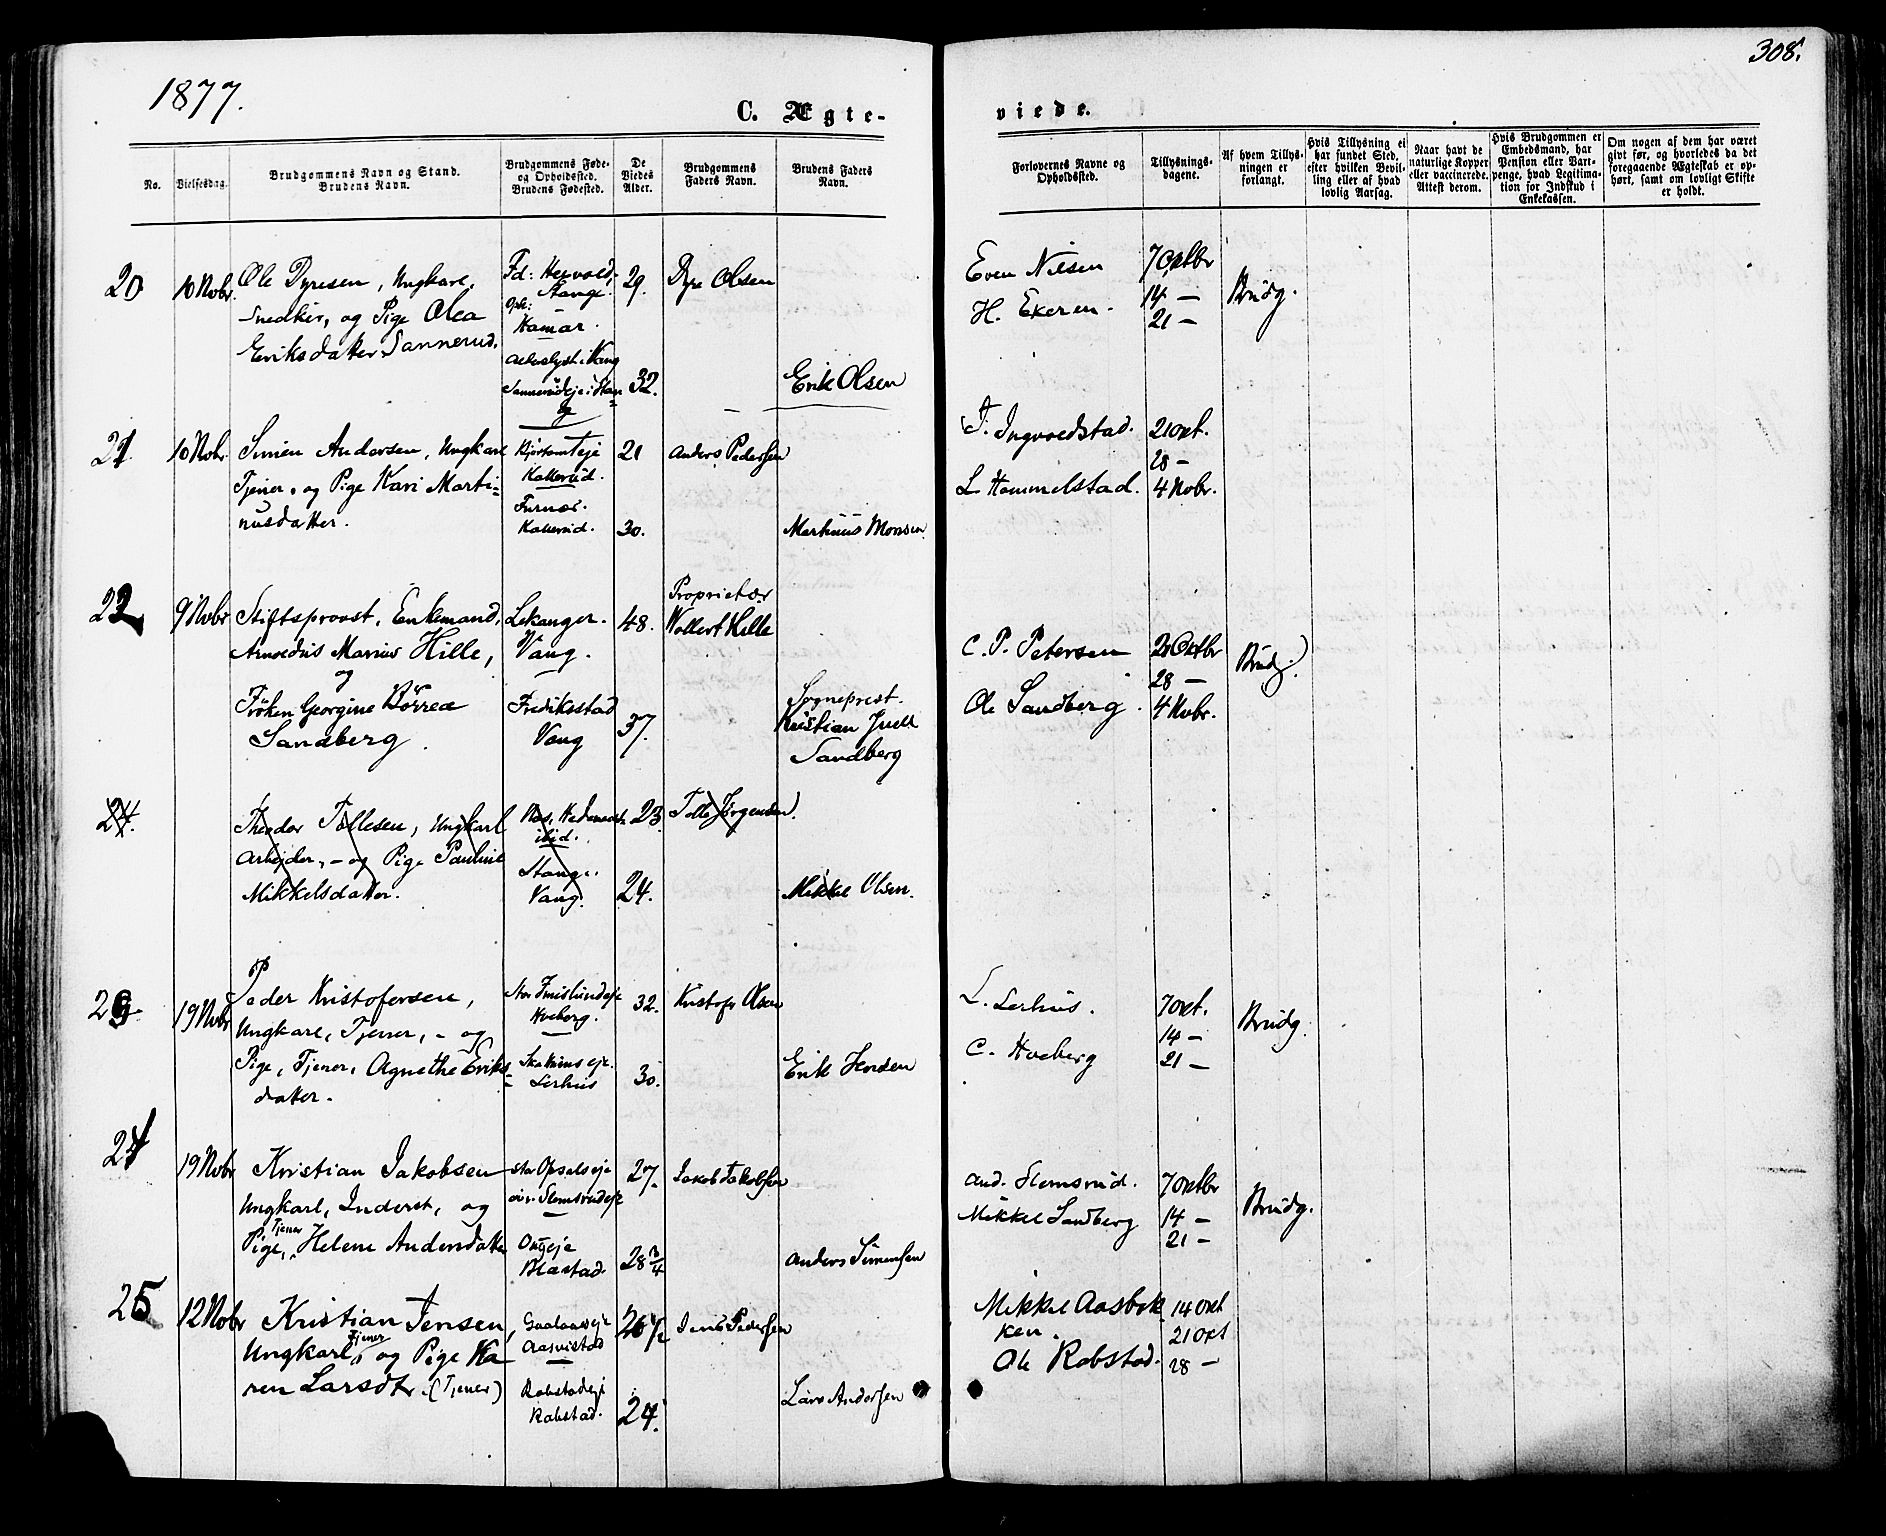 1877.
308.
C. Ægte-
viede.
No.
Vielsesdag.
Brudgommens Navn og Stand.
Brudens Navn.
Brudgommens Føde-
og Opholdssted.
Brudens Fødested.
De
Viedes
Alder.
Brudgommens
Faders Navn.
Brudens Faders
Navn.
Forlovernes Navne og
Opholdssted.
Tillysnings-
dagene.
Af hvem Tillys-
ningen er
forlangt.
Hvis Tillysning ei
har fundet Sted,
efter hvilken Bevil-
ling eller af hvad
lovlig Aarsag.
Naar havt de
naturlige Kopper
eller vaccinerede.
Attest derom.
Hvis Brudgommen er
Embedsmand, har
Pension eller Vart-
penge, hvad Legitima-
tion for Indskud i
Enkekassen.
Om nogen af dem har været
givt før, og hvorledes da det
foregaaende Ægteskab er op-
hørt, samt om lovligt Skifte
er holdt.
20
10 Nobr.
Ole Dyresen, Ungkarl,
Snedker, og Pige Olea
Eriksdatter Sannerud.
Stange.
Hamar.
29.
32.
Dyre Olsen
Erik Olsen
Even Nilsen
H. Ekeren.
7 Oktbr
14 —
21 —
Brudg.
21
10 Nobr.
Simen Andersen, Ungkarl
Tjener, og Pige Kari Marti=
nusdatter.
Kallerud.
Furnæs.
Kallerud.
21
30.
Anders Pedersen
Martinus Monsen
T. Ingvoldstad.
L. Hommelstad.
21 Okt.
28 —
4 Nobr.
22
9 Nobr
Stiftsprovst, Enkemand,
Arnoldus Marius Hille,
og
Frøken Georgine Børrea
Sandberg.
Lekanger.
Vang.
Fredriksstad
Vang
48.
37.
Proprietær
Wollert Hille
Sogneprest.
Kristian Juell
Sandberg
C. P. Petersen
Ole Sandberg.
21 Oktbr
28 —
4 Nobr.
Brudg.
24.
Theodor Tollesen, Ungkarl
Arbejder, – og Pige Pauline
Mikkelsdatter.
ibid.
Stange.
Vang.
23
24.
Tolle Jørgensen.
Mikkel Olsen.
23
19 Nobr
Peder Kristofersen,
Ungkarl, Tjener, – og
Pige, Tjener, Agnethe Eriks=
datter.
Hveberg.
Lerhus
32.
30.
Kristofer Olsen
Erik Jensen
L. Lerhus.
C. Hveberg
7 Okt.
14 —
21 —
Brudg.
24
19 Nobr
Kristian Jakobsen
Ungkarl, Inderst, og
Pige, Tjener, Helene Andersdatter
Blæstad.
27.
28 3/4
Jakob Jakobsen
Anders Simensen
And. Slemsrud.
Mikkel Sandberg
7 Oktbr
14 —
21 —
Brudg.
25
12 Nobr
Kristian Jensen,
Ungkarl, Tjener og Pige Ka
ren Larsdtr. (Tjener)
Rabstad.
26 1/2
24.
Jens Pedersen
Lars Andersen
Mikkel Aasbæk
ken.
Ole Rabstad.
14 Okt
21 Okt
28 —